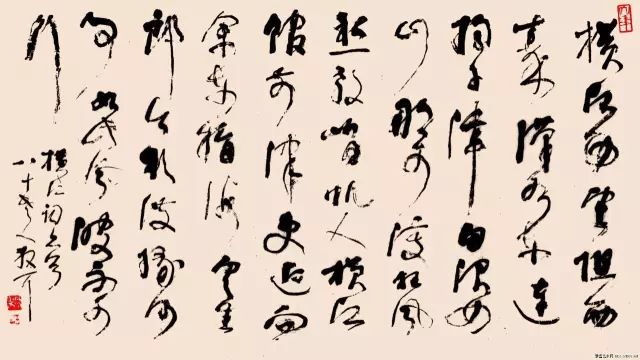 横江西望阻西
秦漢水东连
揚子津白浪如
山那可渡狂风
愁殺峭帆人横江
馆前津吏迎向
余东指海雲生
郎今欲渡缘何
事如此風波不可
行
横江词
八十老人散耳